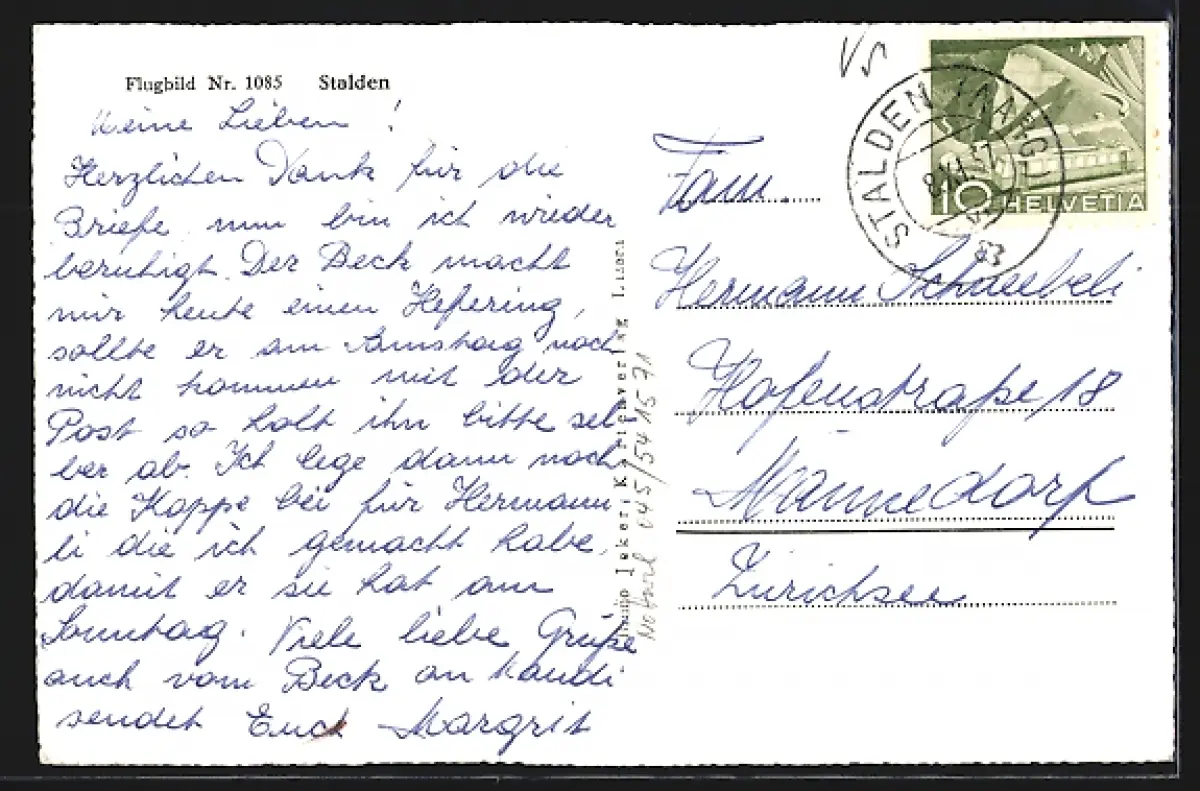 Flugbild Nr. 1085 Stalden
Meine Lieben!
Herzlichen Dank für die
Briefe nun bin ich wieder
beruhigt. Der Beck macht
mir heute einen Hefering,
sollte er am Samstag noch
nicht kommen mit der
Post so holt ihn bitte sel
ber ab. Ich lege dann noch
die Kappe bei für Hermann
li die ich gemacht habe,
damit er sie hat am
Sonntag. Viele liebe Grüße
auch vom Beck an
sendet Euch Margrit
STALDEN (AARG.)
10 HELVETIA
Fam.
Hermann Schneebeli
Hafenstraße 18
Männedorf
Zürichsee
045/541571